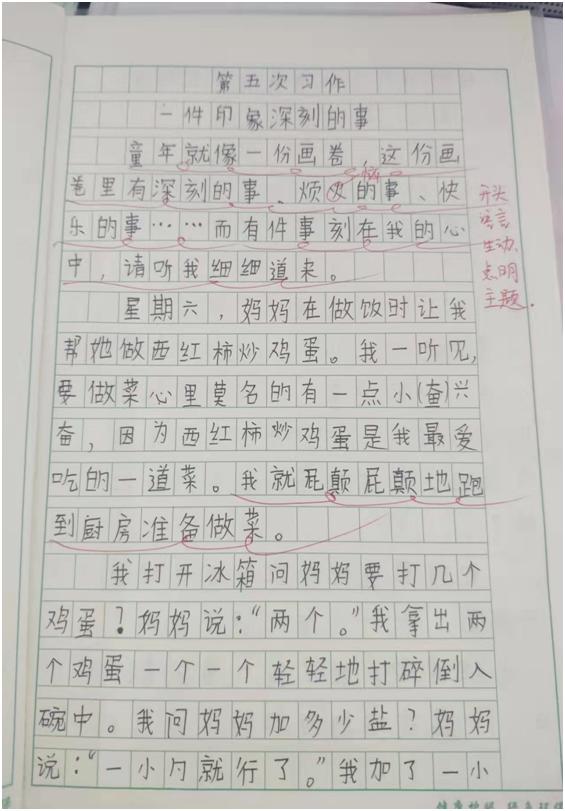 第五次习作
一件印象深刻的事
童年就像一份画卷,这份画
卷里有深刻的事、烦恼的事、快
乐的事……而有件事刻在我的心
中,请听我细细道来。
开头
语言
生动,
点明
主题。
星期六,妈妈在做饭时让我
帮她做西红柿炒鸡蛋。我一听见,
要做菜心里莫名的有一点小(奋)兴
奋,因为西红柿炒鸡蛋是我最爱
吃的一道菜。我就屁颠屁颠地跑
到厨房准备做菜。
我打开冰箱问妈妈要打几个
鸡蛋?妈妈说:“两个。”我拿出两
个鸡蛋一个一个轻轻地打碎倒入
碗中。我问妈妈加多少盐?妈妈
说:“一小勺就行了。”我加了一小